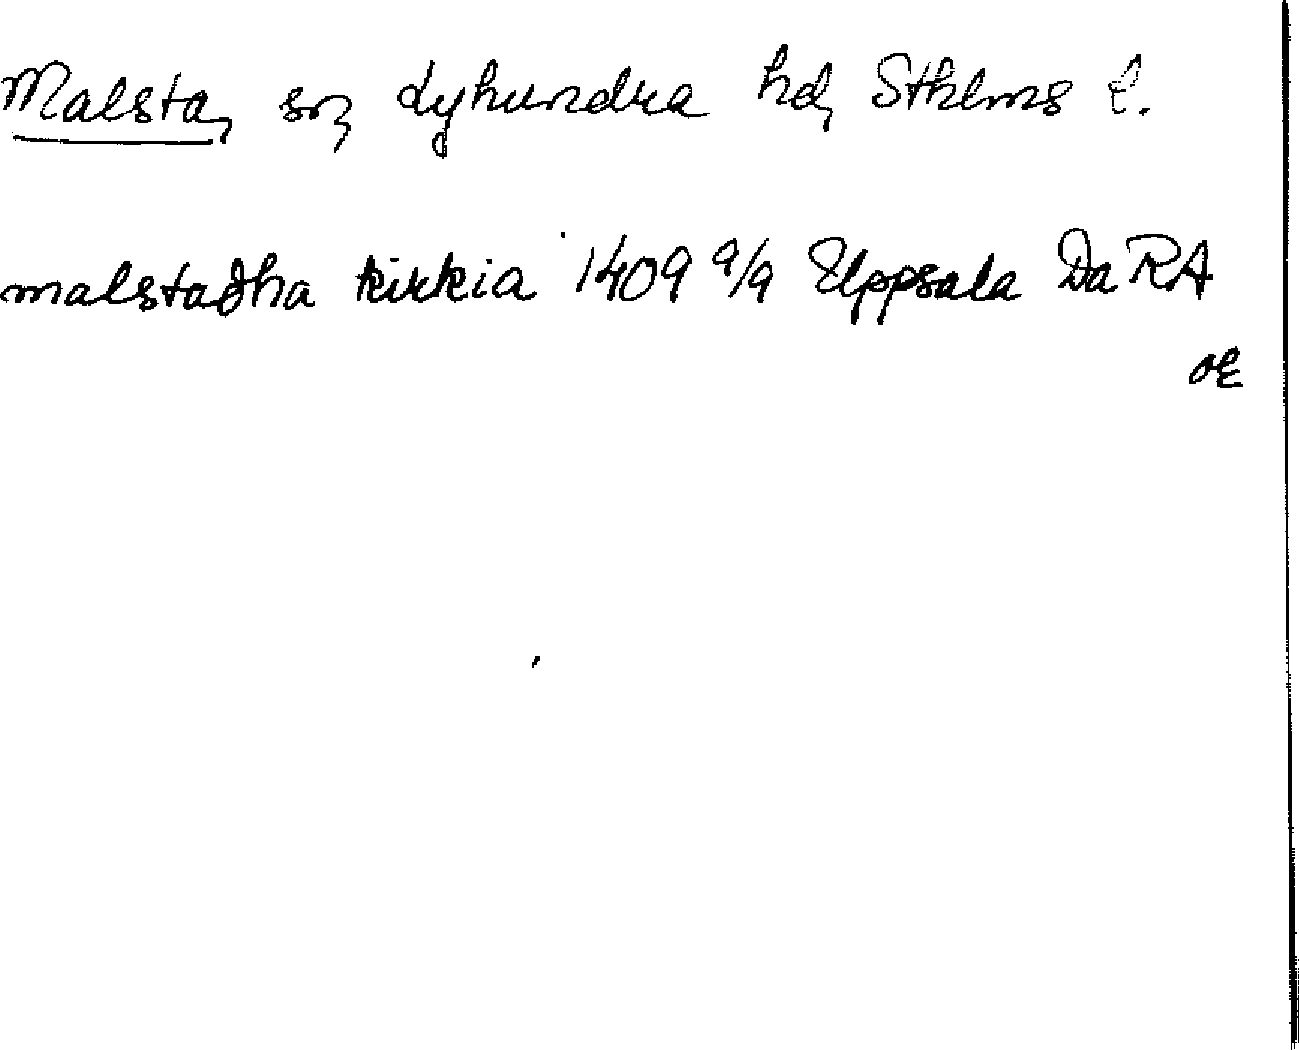 Malsta, sn, Lyhundra hd, Sthlms l.
malstadha kirkia 1409 9/9 Uppsala Da RA
OE